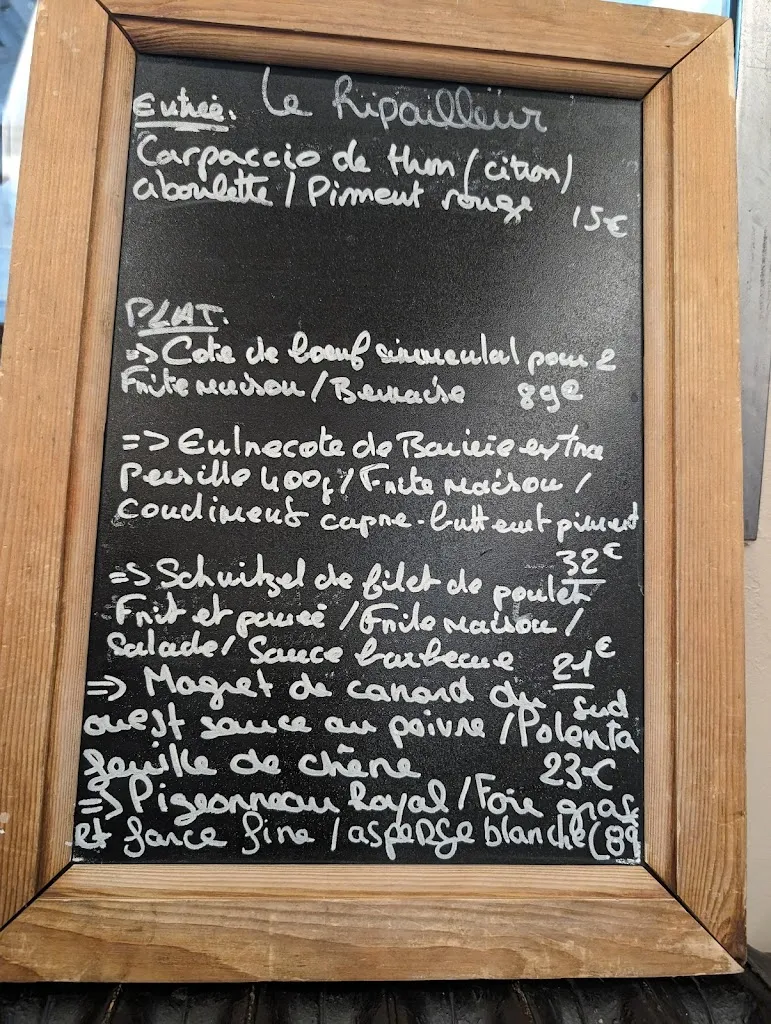 Le Ripailleur
Entrée.
Carpaccio de thon (citron)
aboulette / Piment rouge
15€
PLAT.
=> Cote de boeuf simmental pour 2
Frite maison / Bernaise 89€
=> Entrecote de Baviere extra
Persille 400g / Frite maison /
Condiment capre-butternut piment
32€
=> Schnitzel de filet de poulet
Frit et pané / Frite maison /
Salade / Sauce barbecue 21€
=> Magret de canard du sud
ouest sauce au poivre / Polenta
feuille de chêne 23€
=> Pigeonneau Royal / Foie gras
et farce fine / asperge blanche (89